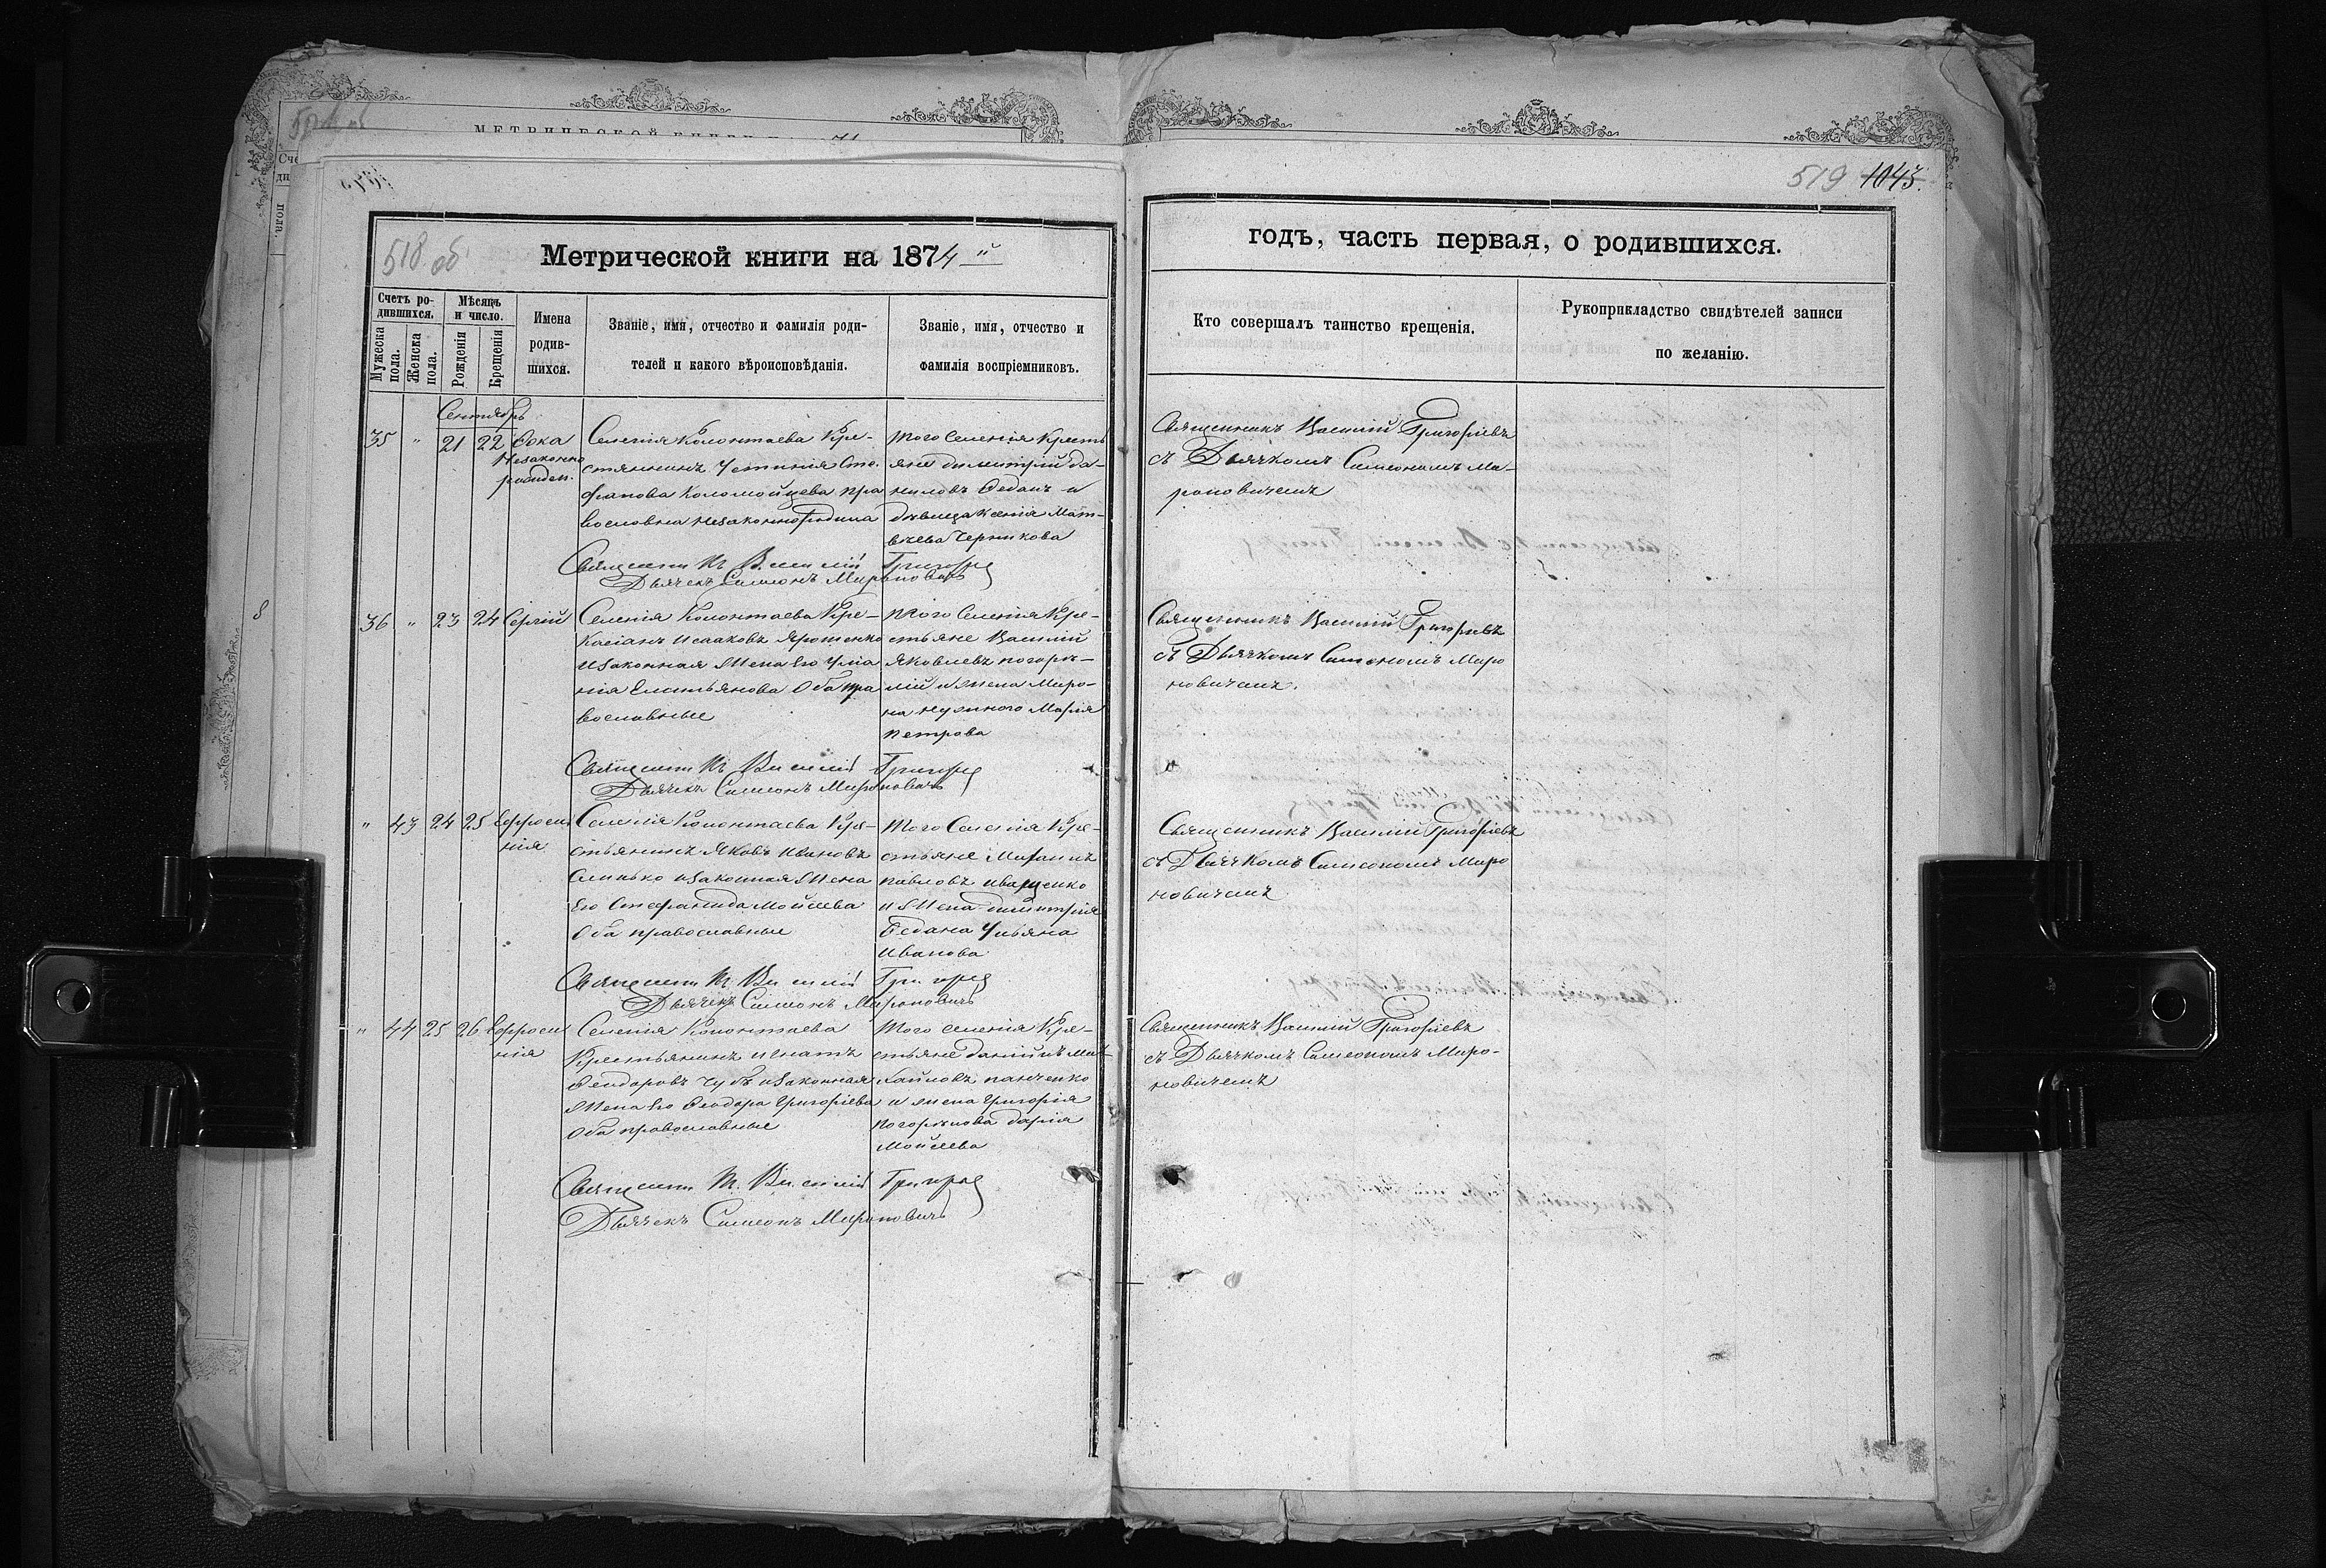 МЕТРИЧЕСКОЙ КНИГИ
518 об
Метрической книги на 1874 й
Счетъ ро-
дившихся.
Мужеска
пола.
Женска
пола.
Мѣсяцъ
и число.
Рожденія
Крещенія
Имена
родив-
шихся.
Званіе, имя, отчество и фамилія роди-
телей и какого вѣроисповѣданія.
Званіе, имя, отчество и
фамилія воспріемниковъ.
Сентябрь
35 " 21 22 Фока
Незаконно
рожден.
Селенія Колонтаева Кре-
стянинъ Устинія Сте-
фанова Коломойцева пра
вославна незаконнородила
того Селенія Кресть
яне димитрій да-
ниловъ Федань и
дѣвица Ксенія Мат-
вѣева Черникова
Священникъ Василій Григор
Дьячекъ Симеонъ Мироновичъ
36 " 23 24 Сергій
Селенія Колонтаева Кре-
Касіанъ Исааковъ Ярошенко
изаконная жена Его Ули
нія Емельянова Оба пра
вославные
того Селенія Кре-
стьяне Василій
Яковлевъ погорѣ-
лій и жена Миро-
на нужного Марія
петрова
Священникъ Василій Григор
Дьячекъ Симеонъ Мироновичъ
" 43 24 25 Евфроси
нія
Селенія Колонтаева Кре-
стьянинъ Яковъ Ивановъ
изаконная жена
Его Стефанида Мойсеева
Оба православные
того Селенія Кре-
стьяне
павловъ иващенко
и жена димитрія
Бедана Ульяна
Иванова
Священникъ Василій Григор
Дьячекъ Симеонъ Мироновичъ
" 44 25 26 Евфроси
нія
Селенія Колонтаева
Крестьянинъ игнатъ
Феодоровъ Чубъ изаконная
жена Его Феодора Григоріева
Оба православные
того селенія Кре-
стьяне даніилъ Ми-
хайловъ панченко
и жена Григорія
погорѣлова дарія
Мойсеева
Священникъ Василій Григор
Дьячекъ Симеонъ Мироновичъ
519 1043.
годъ, часть первая, о родившихся.
Кто совершалъ таинство крещенія.
Рукоприкладство свидѣтелей записи
по желанію.
Священникъ Василій Григоріевъ
съ Дьячкомъ Симеономъ Ми-
роновичемъ
Священникъ Василій Григоріевъ
съ Дьячкомъ Симеономъ Миро
новичемъ.
Священникъ Василій Григоріевъ
съ Дьячкомъ Симеономъ Миро
новичемъ
Священникъ Василій Григоріевъ
съ Дьячкомъ Симеономъ Миро-
новичемъ